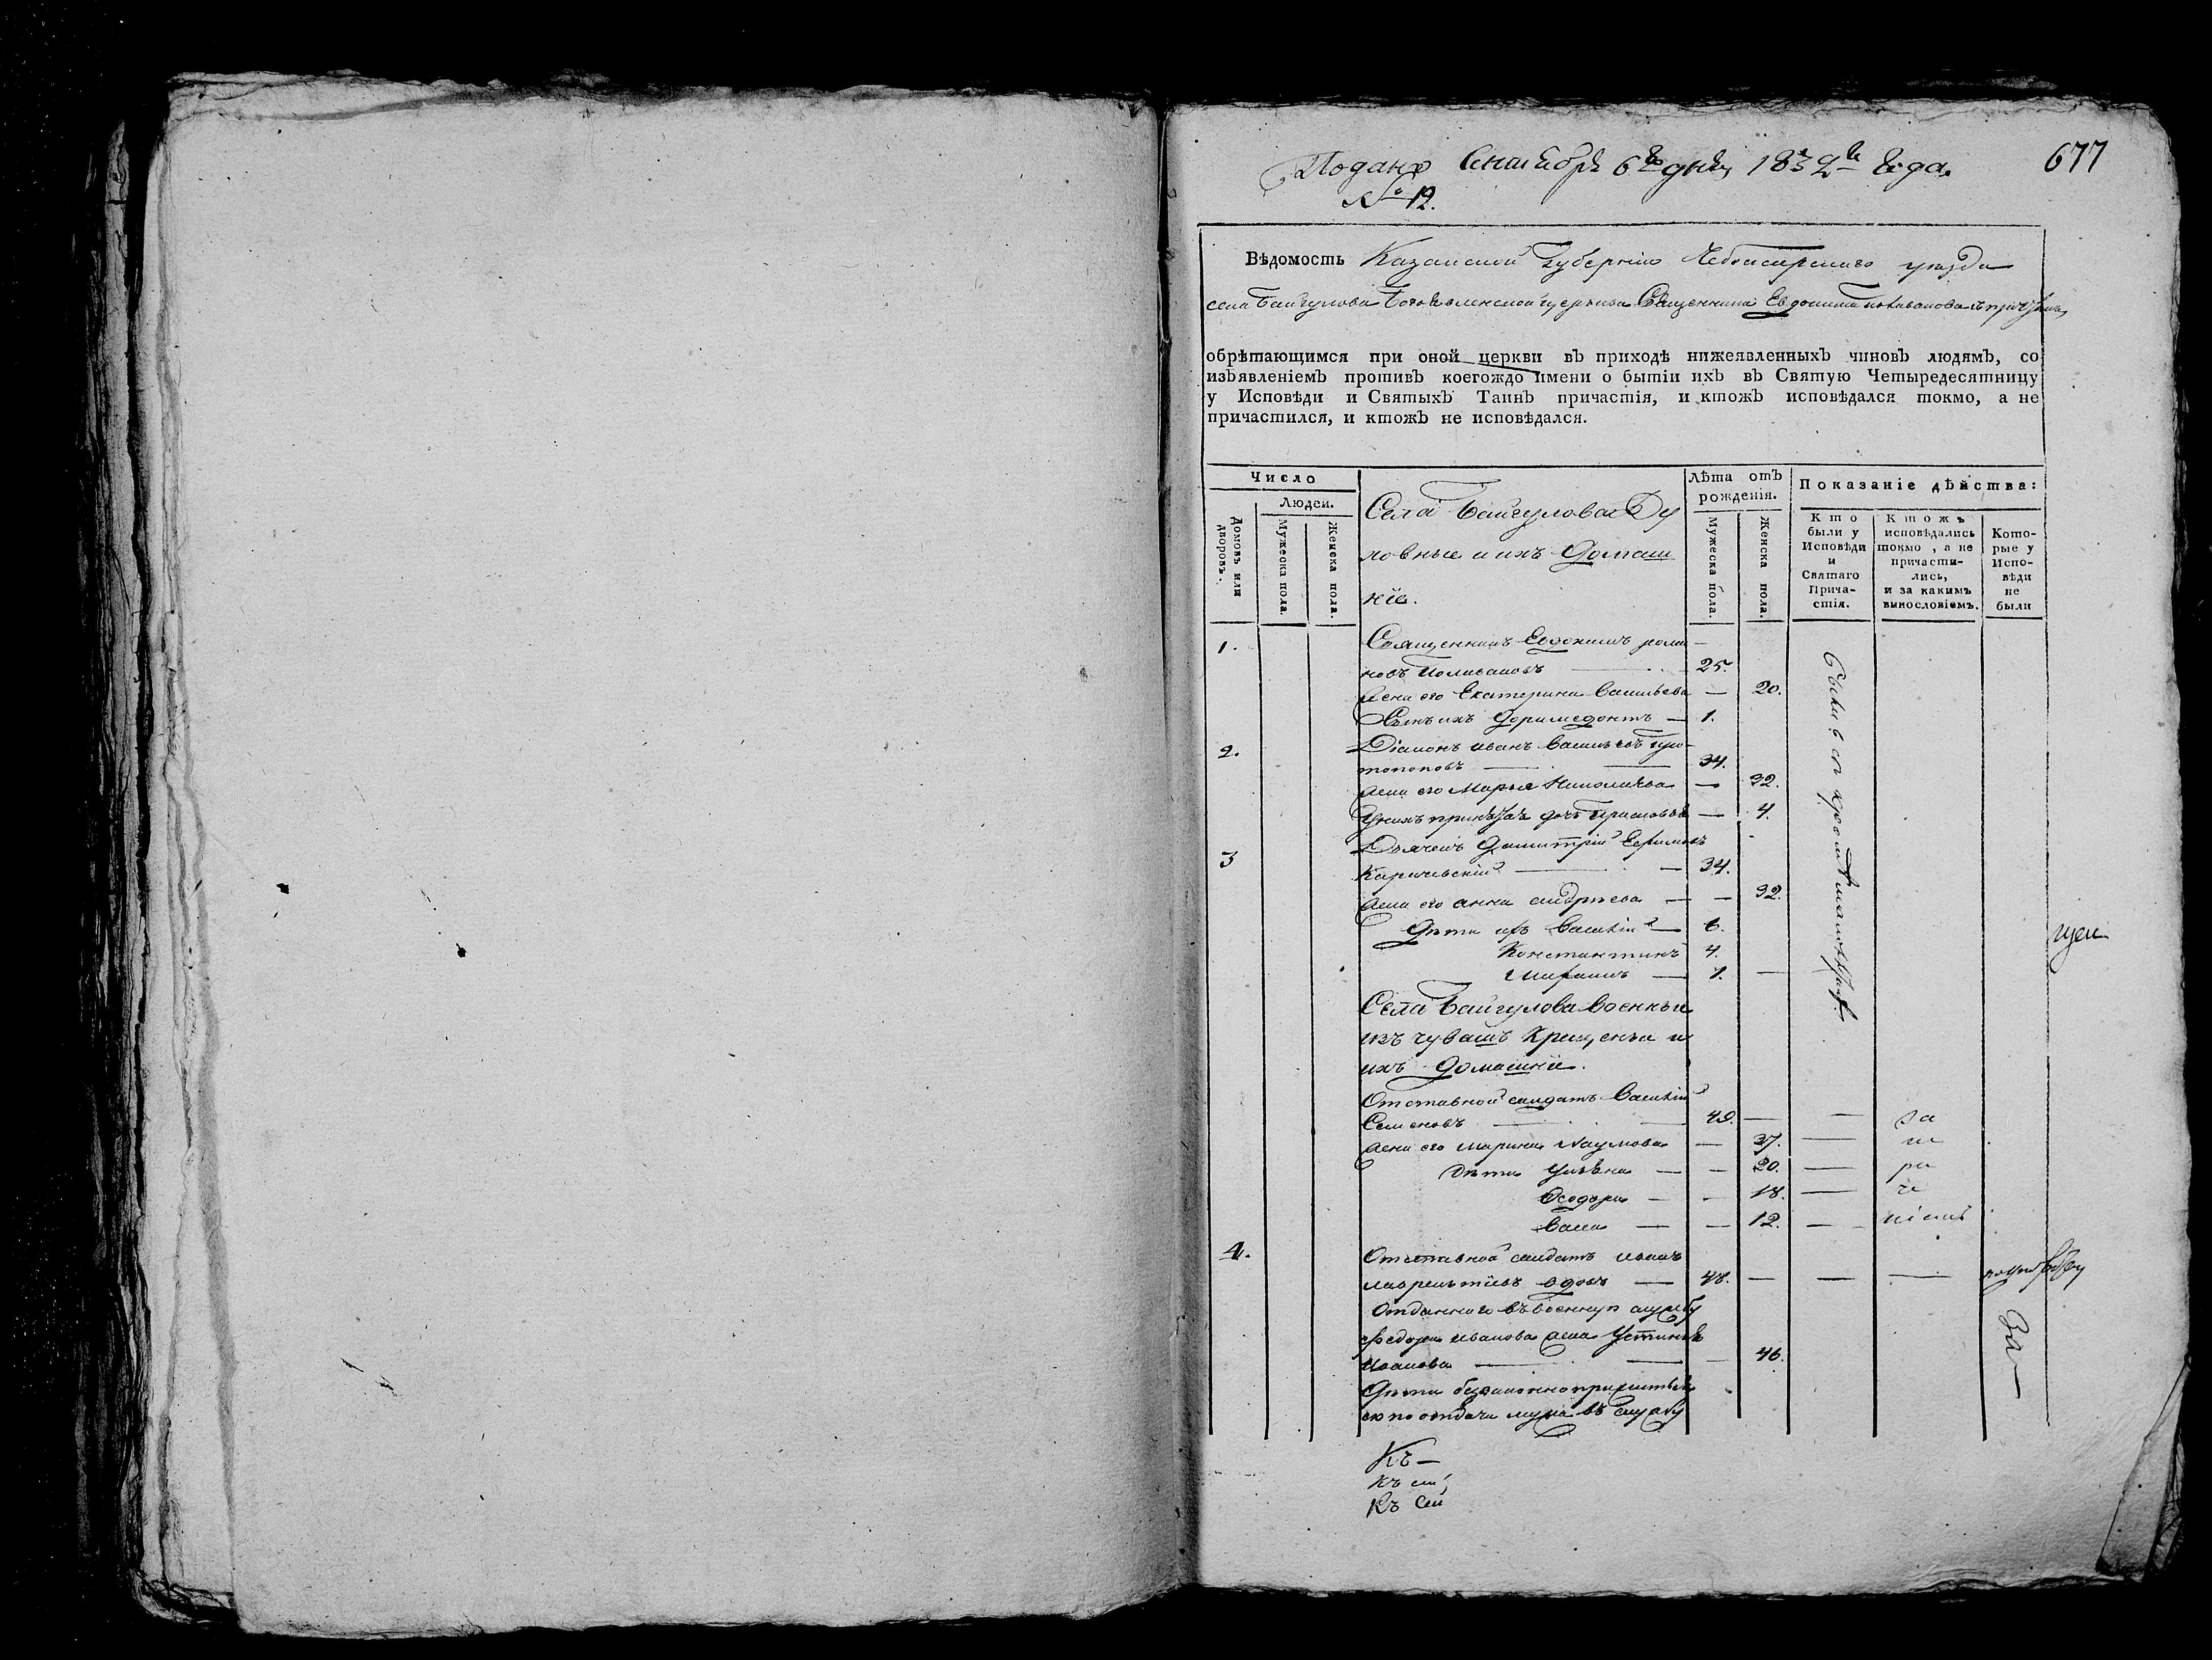 Подано Сентября 6го дня 1832го Года.
677
№ 12.
Вѣдомость Казанской Губерніи Чебоксарскаго уѣзда
села Байгулова Богоявленской церкви Священника Евдокима
обрѣтающимся при оной церкви въ приходѣ нижеявленныхъ чиновъ людямъ, со
изъявленіемъ противъ коегождо имени о бытіи ихъ въ Святую Четыредесятницу
у Исповѣди и Святыхъ Таинъ причастія, и ктожъ исповѣдался токмо, а не
причастился, и ктожъ не исповѣдался.
Число
Людей.
Домовъ или дворовъ.
Мужеска пола.
Женска пола.
Села Байгулова Ду
ховные и ихъ домаш
ніе.
Лѣта отъ
рожденія.
Мужеска пола.
Женска пола.
Показаніе дѣйства:
Кто
были у
Исповѣди
и
Святаго
Прича-
стія.
Ктожъ
исповѣдались
токмо, а не
причасти-
лись,
и за какимъ
винословіемъ.
Кото-
рые у
Испо-
вѣди
не
были
1. Священникъ Евдокимъ рома —
новъ 25.
жена его Екатерина Васильева — 20.
Сынъ ихъ Доримедонтъ — 1.
2. Діаконъ иванъ Васильевъ Про-
топоповъ — 34.
жена его Марья Николаева — 32.
— 4.
3 Дьячекъ Димитрій Ефимовъ
— 34.
жена его анна андреева — — 32.
Дѣти ихъ Василій — 6.
Константинъ 4.
— 1. —
Были
щен
Села Байгулова военные
изъ чувашъ Крещеныи и
ихъ домашніе.
Отставной салдатъ Василій
Семеновъ — 49. — — за
жена его марина Наумова — 37. — не
Дѣти Ульяна — — 20. — ра
Ѳеодора — — 18. — че
Васса — — 12. — ніемъ
4. Отставной салдатъ иванъ
лаврентіевъ вдовъ — 48. — — —
Отданнаго въ военную службу
Федора иванова жена Устинья
Иванова — — 46.
За —
Дѣти беззаконно прижитые
ею по отдачи мужа въ службу
Къ —
Къ си
Къ Си